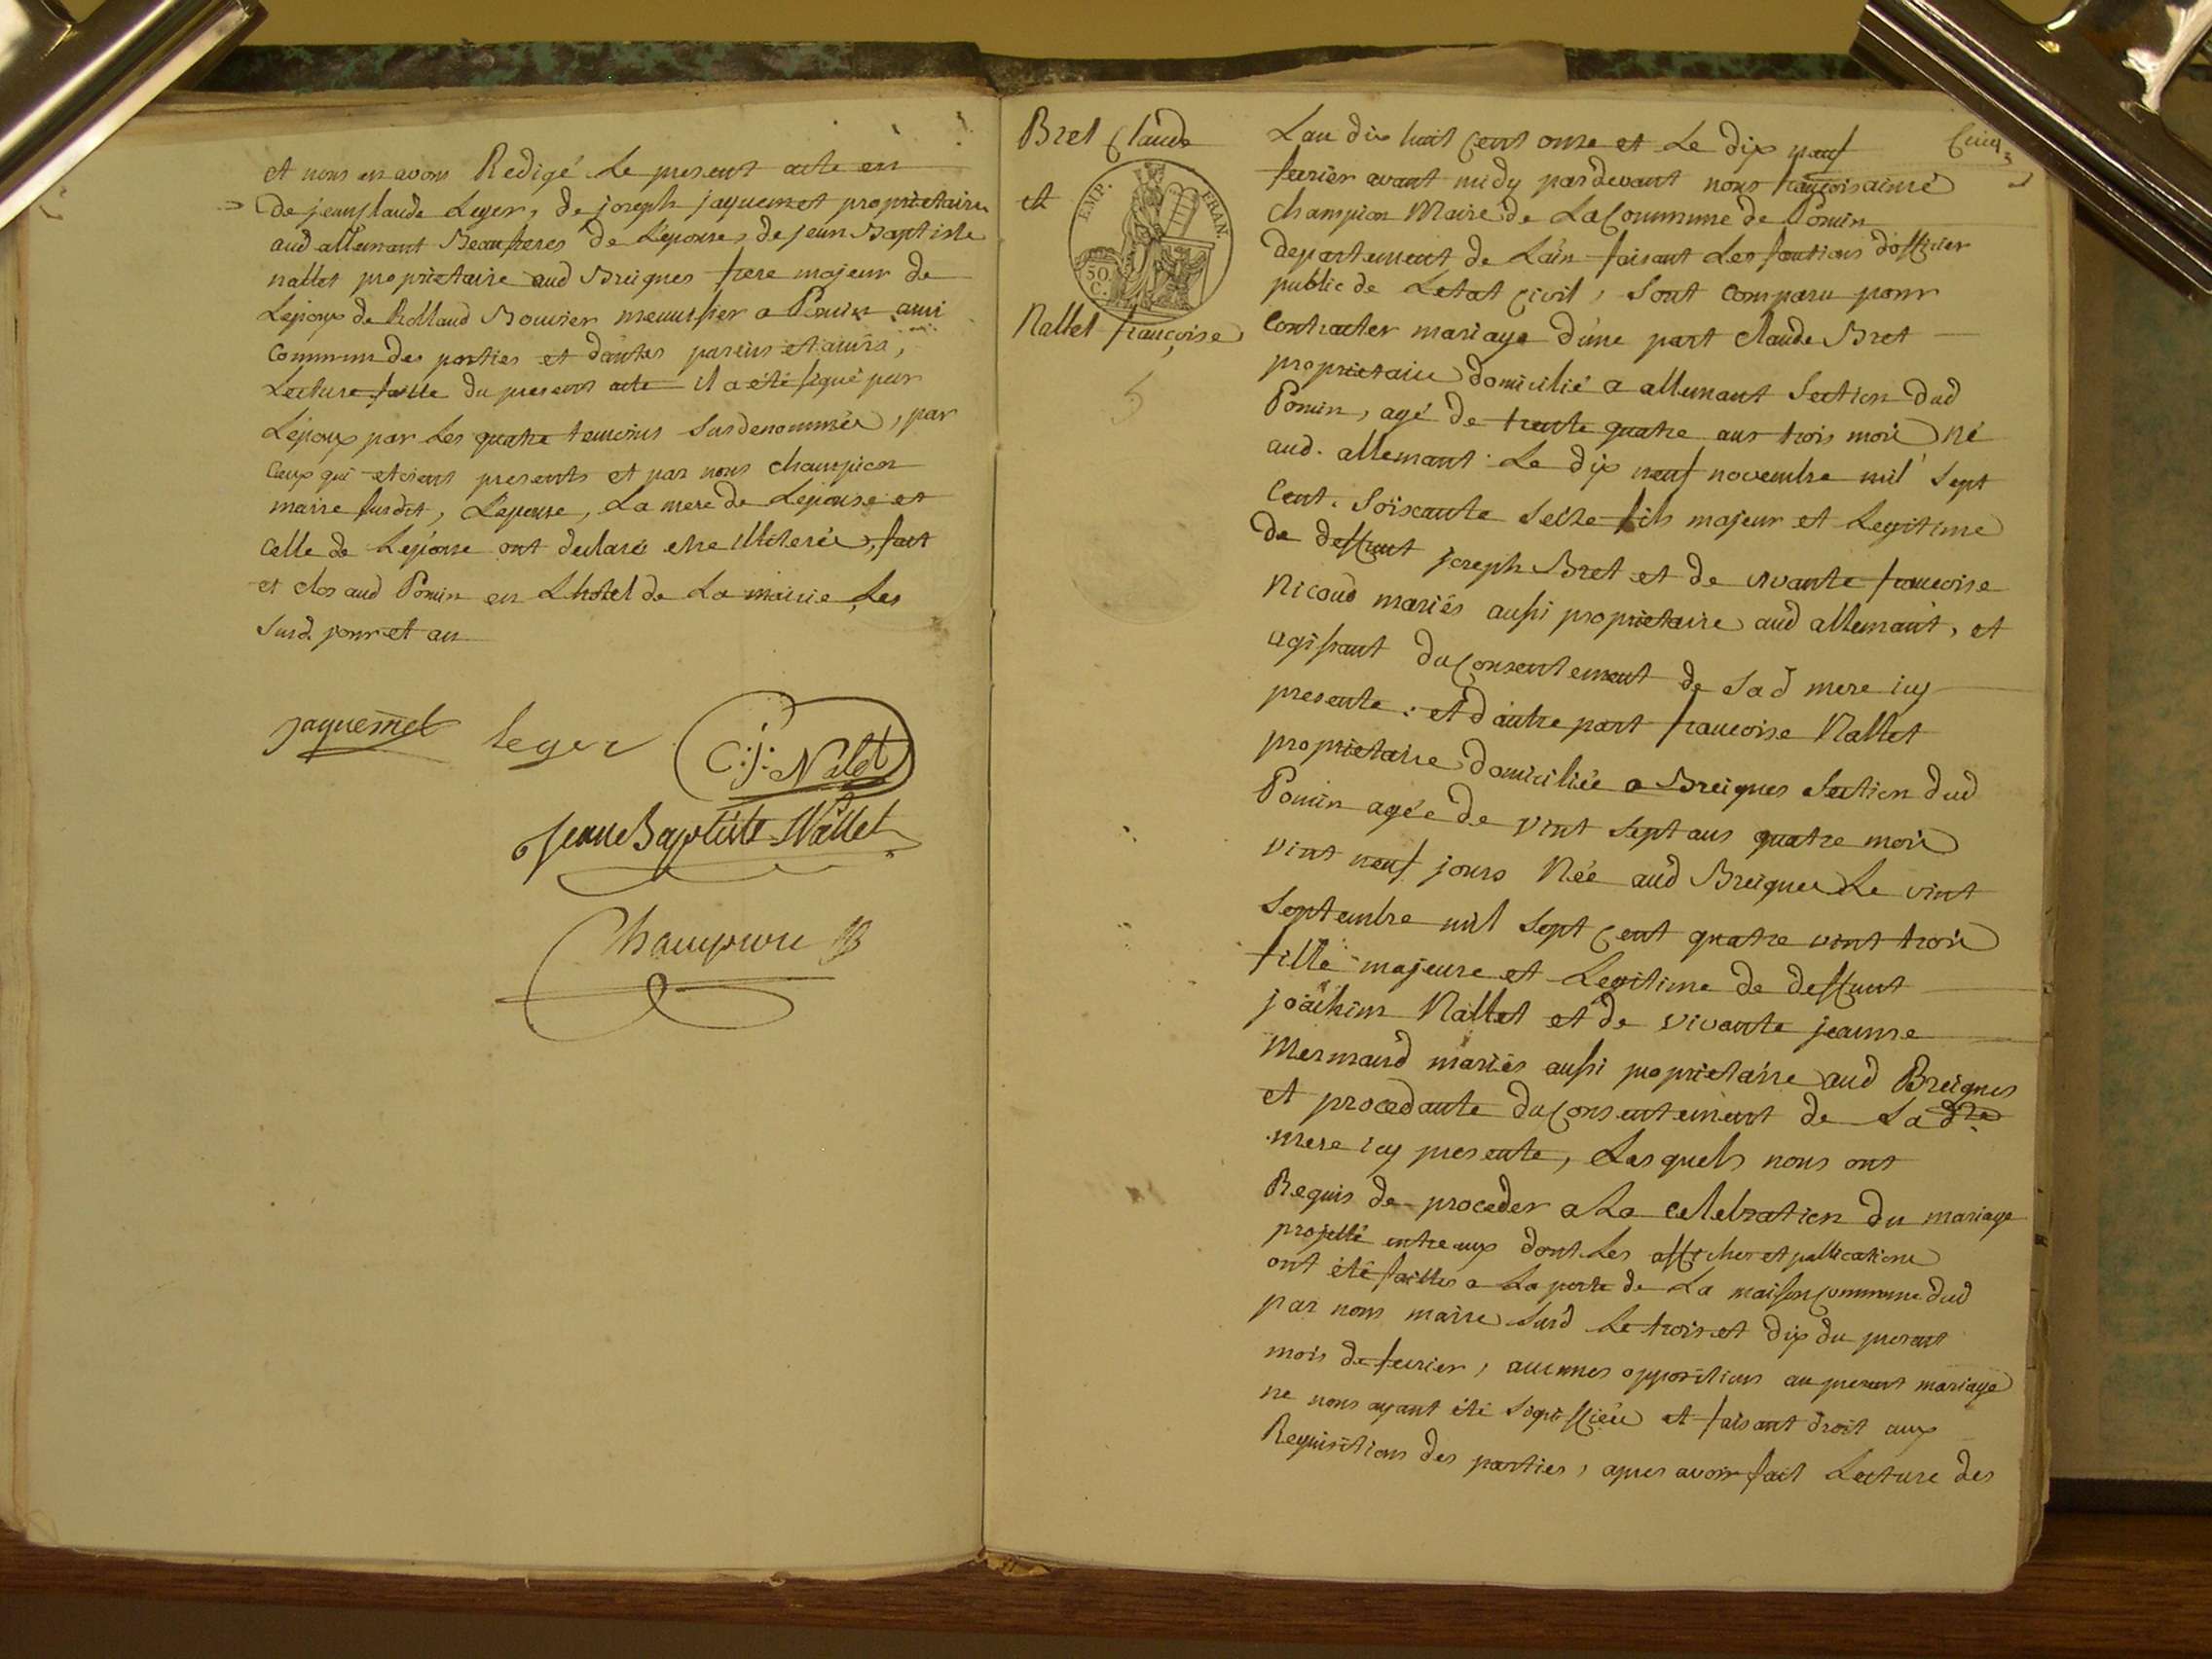 et nous en avons Redigé Le present acte en
de jean Claude Leger, de joseph jaquemet proprietaires
aud allemant Beaufreres de L'epouse, de jean Baptiste
nallet proprietaire aud Breignes frere majeur de
Lepoux de Rolland Bouvier menuisier a Pomin ami
commun des parties et dautres parens et amis,
Lecture faitte du present acte il a été signé par
Lepoux par Les quatre temoins Susdenommés, par
Ceux qui etoient presents et par nous Champion
maire Susdit, Lepouse, La mere de Lepouse et
Celle de Lepouse ont declaré etre illiterés, fait
et clos aud Pomin en L'hotel de La mairie Les
Susd. jour et an
jaquemet leger C: j: Nalet
Jean Baptiste Nallet
Champion
Bret Claude
et
EMP. FRAN.
50 C.
Nallet francoise
5
Cinq
Lan dix huit Cent onze et Le dix neuf
fevrier avant midy pardevant nous françois aimé
Champion Maire de La Commune de Pomin
departement de Lain faisant Les fontions dofficier
public de Letat Civil, Sont Comparu pour
Contracter mariage d'une part Claude Bret
proprietaire domicilié a allemant Section dud
Pomin, agé de trente quatre ans trois mois né
aud. allemant Le dix neuf novembre mil Sept
Cent. Soixante Seize fils majeur et Legitime
de deffunt joseph Bret et de vivante francoise
Nicoud mariés aussi proprietaire aud allemant, et
agissant du Consentement de Sad mere icy
presente: et d'autre part francoise Nallet
proprietaire domiciliée a Breignes Section dud
Pomin agée de vint Sept ans quatre mois
vint neuf jours Née aud Breignes Le vint
Septembre mil Sept Cent quatre vint trois
fille majeure et Legitime de deffunt
joachim Nallet et de vivante jeanne
Mermand mariés aussi proprietaire aud Breignes
et procedante du Consentement de La dte
mere icy presente, Lesquels nous ont
Requis de proceder a La celebration du mariage
projetté entre eux dont Les affiches et publications
ont été faittes a La porte de La maison Commune dud
par nous maire Susd Le trois et dix du present
mois de fevrier, aucunes oppositions au present mariage
ne nous ayant été Signiffiées et faisant droit aux
Requisitions des parties, apres avoir fait Lecture des